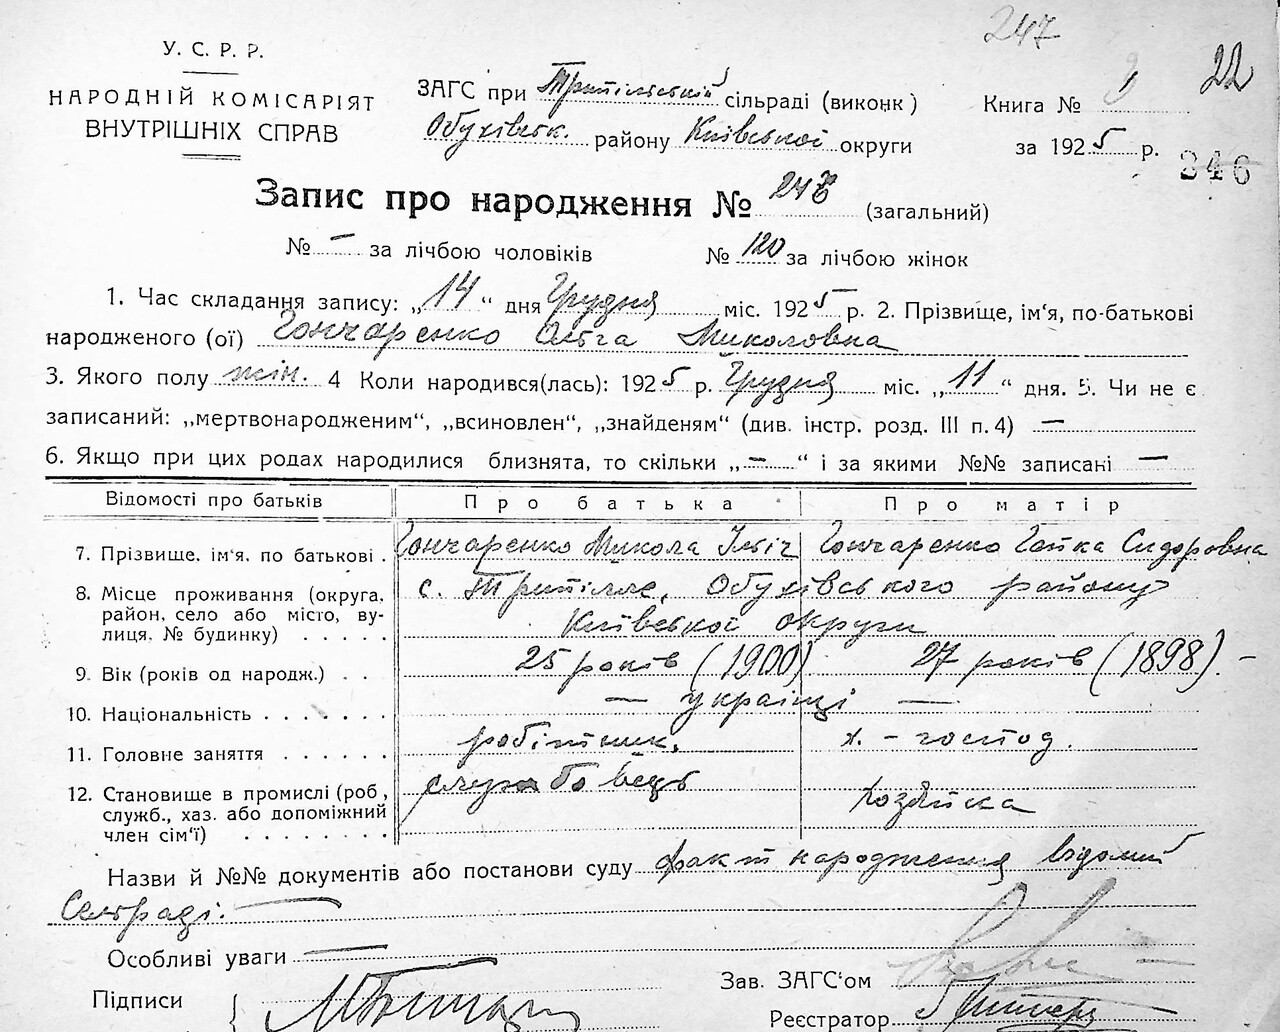 247
У. С. Р. Р.
НАРОДНІЙ КОМІСАРІЯТ
ВНУТРІШНІХ СПРАВ
ЗАГС при Трипільській сільраді (виконк )
Обухівськ. району Київської округи
Книга №
22
за 1925 р.
246
Запис про народження № 247 (загальний)
№ — за лічбою чоловіків № 120 за лічбою жінок
1. Час складання запису: „14“ дня Грудня міс. 1925 р. 2. Прізвище, ім‘я, по-батькові
народженого (ої) Гончаренко Ольга Миколовна
3. Якого полу жін. 4 Коли народився(лась): 1925 р. Грудня міс. „11“ дня. 5. Чи не є
записаний: „мертвонародженим“, „всиновлен“, „знайденям“ (див. інстр. розд. III п. 4) —
6. Якщо при цих родах народилися близнята, то скільки „—“ і за якими №№ записані —
Відомості про батьків Про батька Про матір
7. Прізвище, ім‘я, по батькові . Гончаренко Микола Ілліч Гончаренко Гапка Сидоровна
8. Місце проживання (округа, район, село або місто, вулиця, № будинку) . . . . . с. Трипілля, Обухівського району
Київської округи
9. Вік (років од народж.) . . 25 років (1900) 27 років (1898). –
10. Національність . . . . . . . — українці —
11. Головне заняття . . . . . . робітник, х. - господ.
12. Становище в промислі (роб, служб., хаз. або допоміжний член сім‘ї) . . . . . . . . службовець хозяйка
Назви й №№ документів або постанови суду факт народження відомий
Сельраді. —
Особливі уваги —
Зав. ЗАГС‘ом
Підписи {
Реєстратор